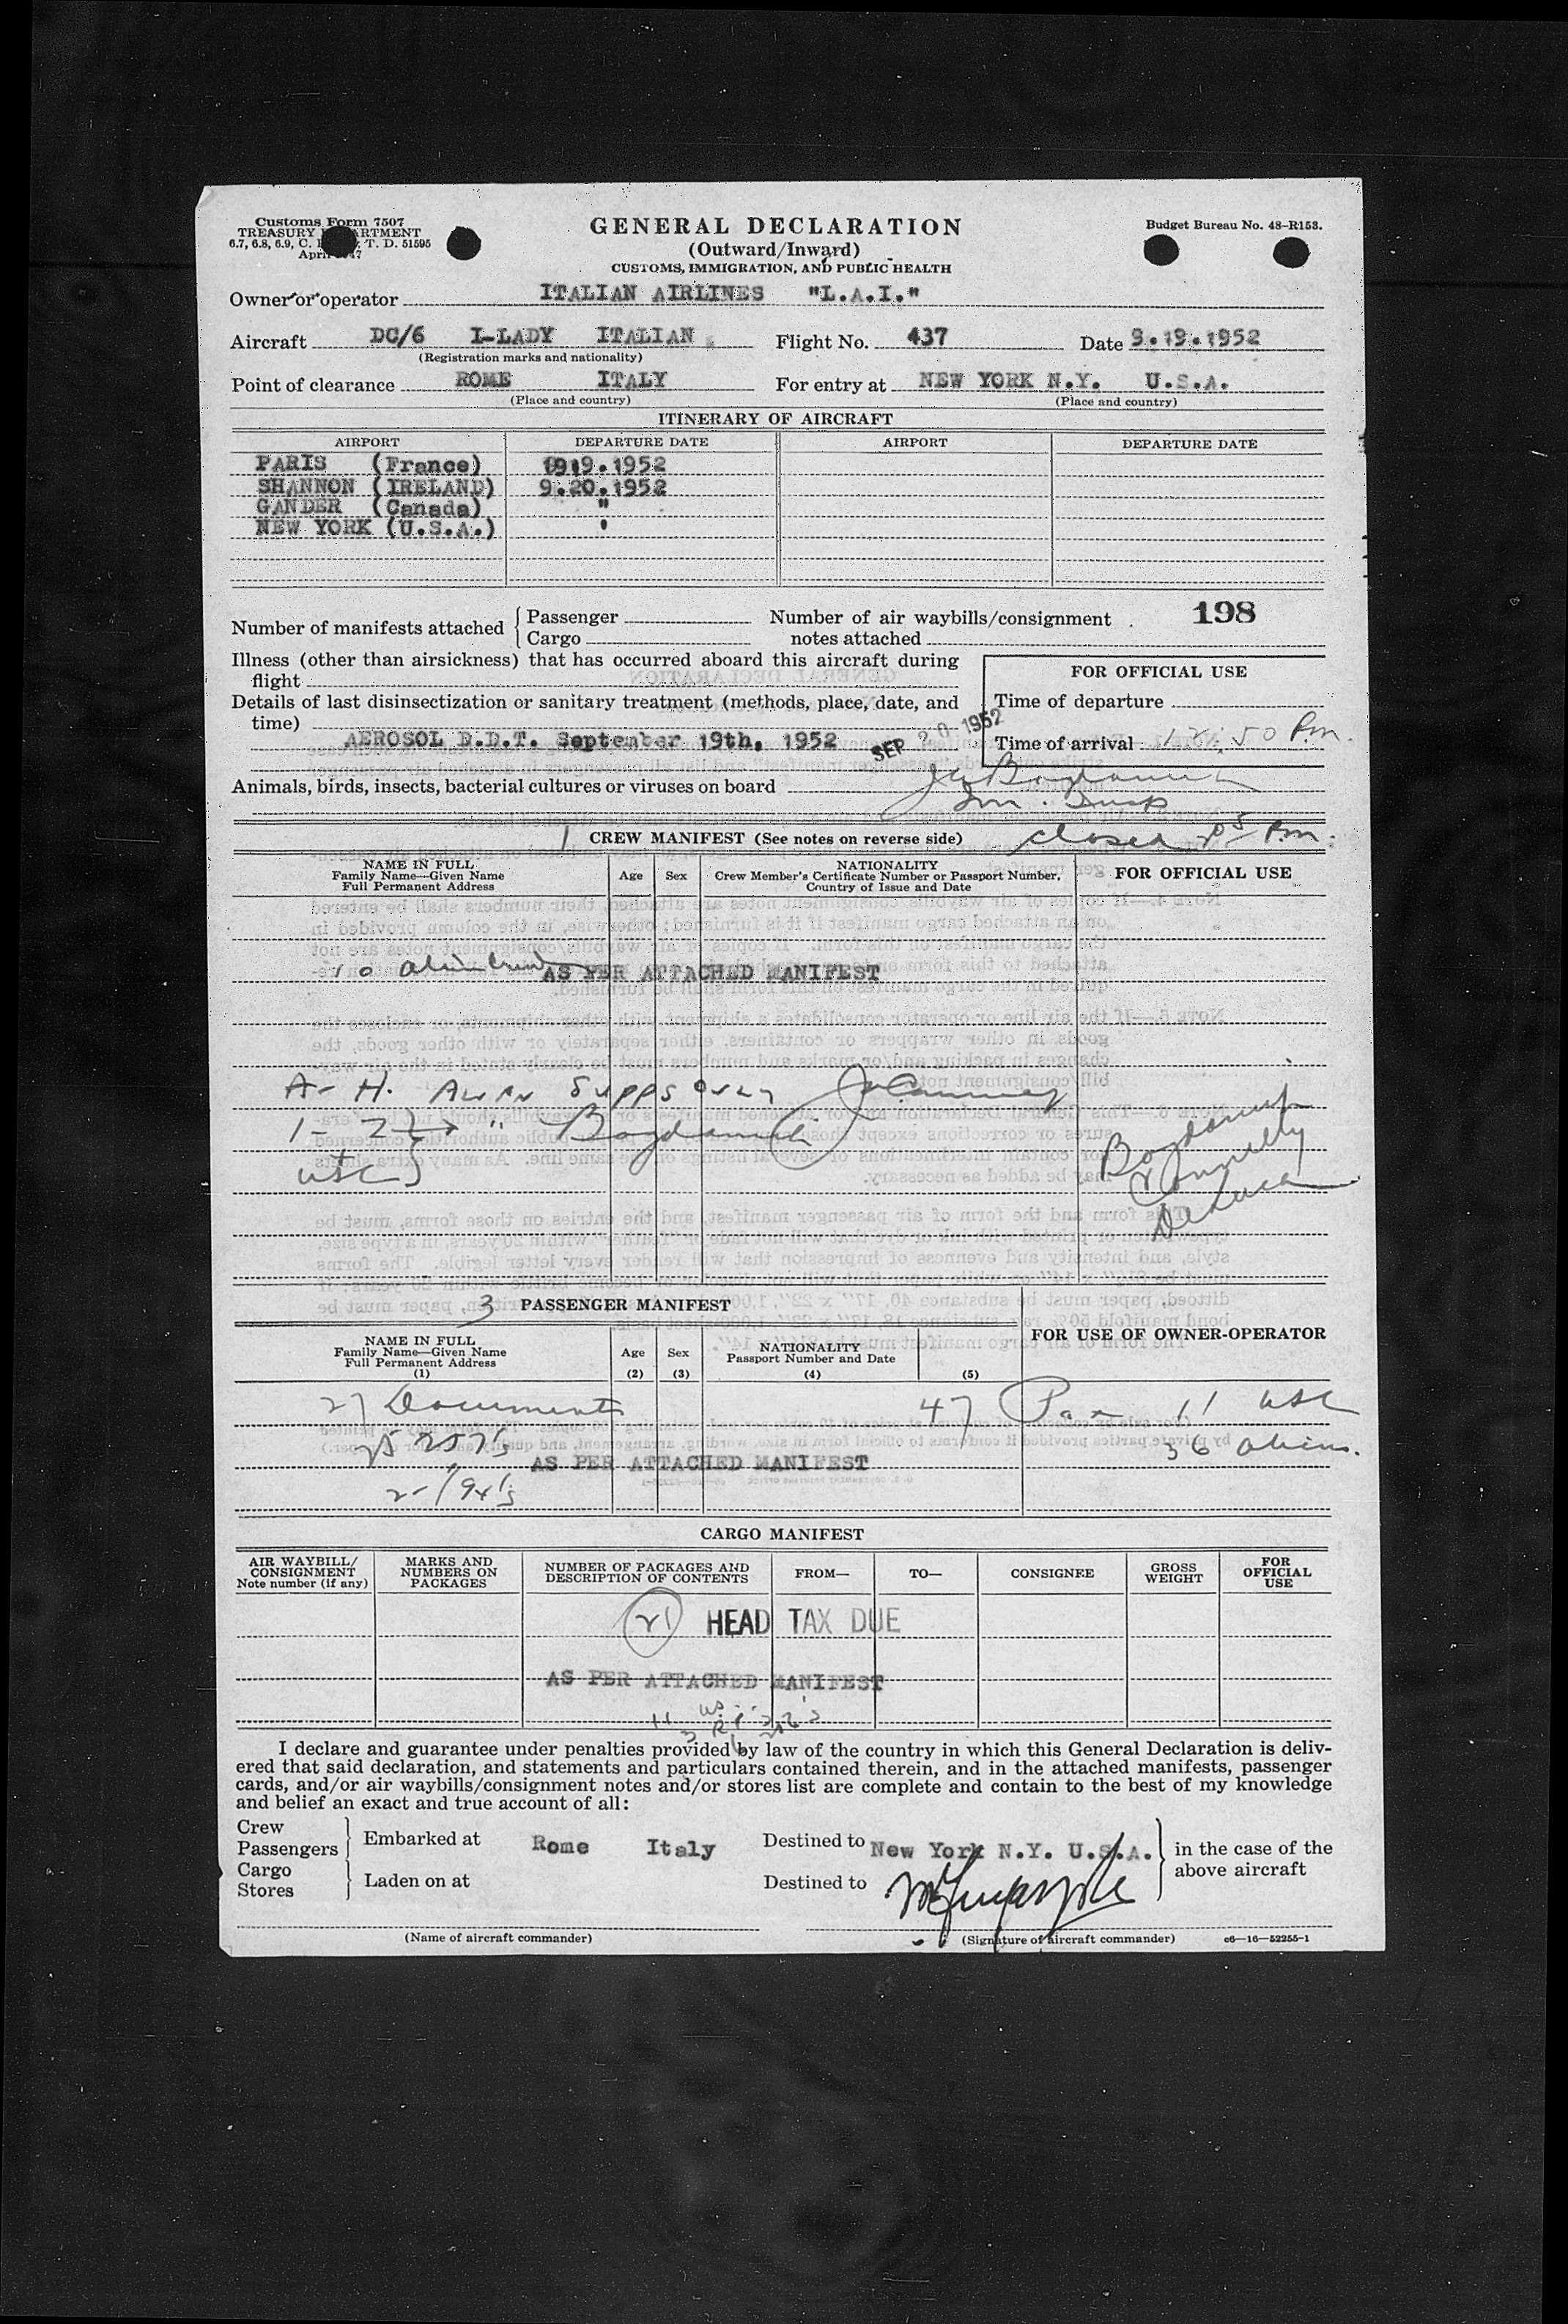 Customs Form 7507
TREASURY DEPARTMENT
6.7, 6.8, 6.9, C. T. D. 51595
April 47
GENERAL DECLARATION
(Outward/Inward)
CUSTOMS, IMMIGRATION, AND PUBLIC HEALTH
Budget Bureau No. 48-R153.
Owner or operator ITALIAN AIRLINES "L.A.I."
Aircraft DC/6 I-LADY ITALIAN Flight No. 437 Date 9.19.1952
(Registration marks and nationality)
Point of clearance ROME ITALY For entry at NEW YORK N.Y. U.S.A.
(Place and country) (Place and country)
ITINERARY OF AIRCRAFT
AIRPORT DEPARTURE DATE AIRPORT DEPARTURE DATE
PARIS (France) 919.1952
SHANNON (IRELAND) 9.20.1952
GANDER (Canada) "
NEW YORK (U.S.A.) '
198
Number of manifests attached { Passenger
Cargo
Number of air waybills/consignment
notes attached
Illness (other than airsickness) that has occurred aboard this aircraft during
flight
Details of last disinsectization or sanitary treatment (methods, place, date, and
time)
AEROSOL D.D.T. September 19th, 1952
SEP 20 1952
FOR OFFICIAL USE
Time of departure
Time of arrival 12:50 P.m.
Animals, birds, insects, bacterial cultures or viruses on board
Im. Insp
1 CREW MANIFEST (See notes on reverse side) closed 205 P.m.
NAME IN FULL
Family Name—Given Name
Full Permanent Address
Age Sex
NATIONALITY
Crew Member's Certificate Number or Passport Number,
Country of Issue and Date
FOR OFFICIAL USE
10 alien Crew AS PER ATTACHED MANIFEST
A - H. ALIEN SUPPS ONLY
I - Z } → " Bogdanich
+
USC }
Bogdanich
Connelly
DeLuca
3 PASSENGER MANIFEST
NAME IN FULL
Family Name—Given Name
Full Permanent Address
(1)
Age
(2)
Sex
(3)
NATIONALITY
Passport Number and Date
(4)
(5)
FOR USE OF OWNER-OPERATOR
27 Documents
25 257's
AS PER ATTACHED MANIFEST
2-194's
47 Pax 11 USC
36 aliens.
CARGO MANIFEST
AIR WAYBILL/
CONSIGNMENT
Note number (if any)
MARKS AND
NUMBERS ON
PACKAGES
NUMBER OF PACKAGES AND
DESCRIPTION OF CONTENTS
FROM—
TO—
CONSIGNEE
GROSS
WEIGHT
FOR
OFFICIAL
USE
21 HEAD TAX DUE
AS PER ATTACHED MANIFEST
I declare and guarantee under penalties provided by law of the country in which this General Declaration is deliv-
ered that said declaration, and statements and particulars contained therein, and in the attached manifests, passenger
cards, and/or air waybills/consignment notes and/or stores list are complete and contain to the best of my knowledge
and belief an exact and true account of all:
Crew
Passengers
Cargo
Stores
Embarked at Rome Italy Destined to New York N.Y. U.S.A.
Laden on at Destined to
in the case of the
above aircraft
(Name of aircraft commander) (Signature of aircraft commander) c6—16—52255-1